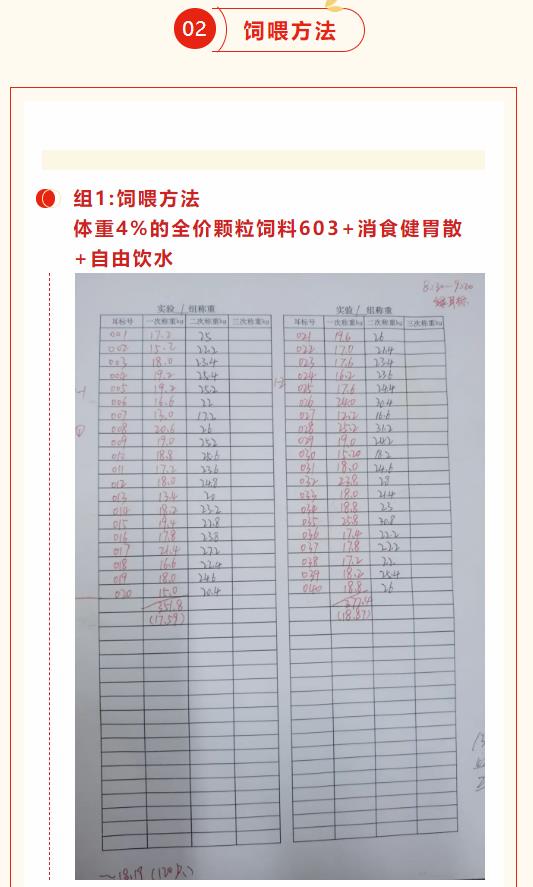 02 饲喂方法
组1:饲喂方法
体重4%的全价颗粒饲料603+消食健胃散
+自由饮水
8:30—9:20
实验 / 组称重
耳标号 一次称重kg 二次称重kg 三次称重kg
001 17.2 25
002 15.2 22.2
003 18.0 23.4
004 19.2 25.4
005 19.2 25.2
006 16.6 22
007 13.0 17.2
008 20.6 26
009 19.0 25.2
010 18.8 25.6
011 17.2 23.6
012 18.0 24.8
013 13.4 20
014 18.2 23.2
015 19.4 22.8
016 17.8 23.8
017 21.4 27.2
018 16.6 22.4
019 18.0 24.6
020 15.0 20.4
351.8
(17.59)
实验 / 组称重
耳标号 一次称重kg 二次称重kg 三次称重kg
021 19.6 26
022 17.0 21.4
023 17.6 23.4
024 16.2 23.6
025 17.6 24.4
026 24.0 30.4
027 12.2 16.6
028 25.2 31.2
029 19.0 24.2
030 15.20 18.2
031 18.0 24.6
032 23.8 28
033 18.0 21.4
034 18.8 23
035 25.8 30.8
036 17.4 22.2
037 17.8 22.2
038 17.2 22
039 18.2 25.4
040 18.8 26
377.4
(18.87)